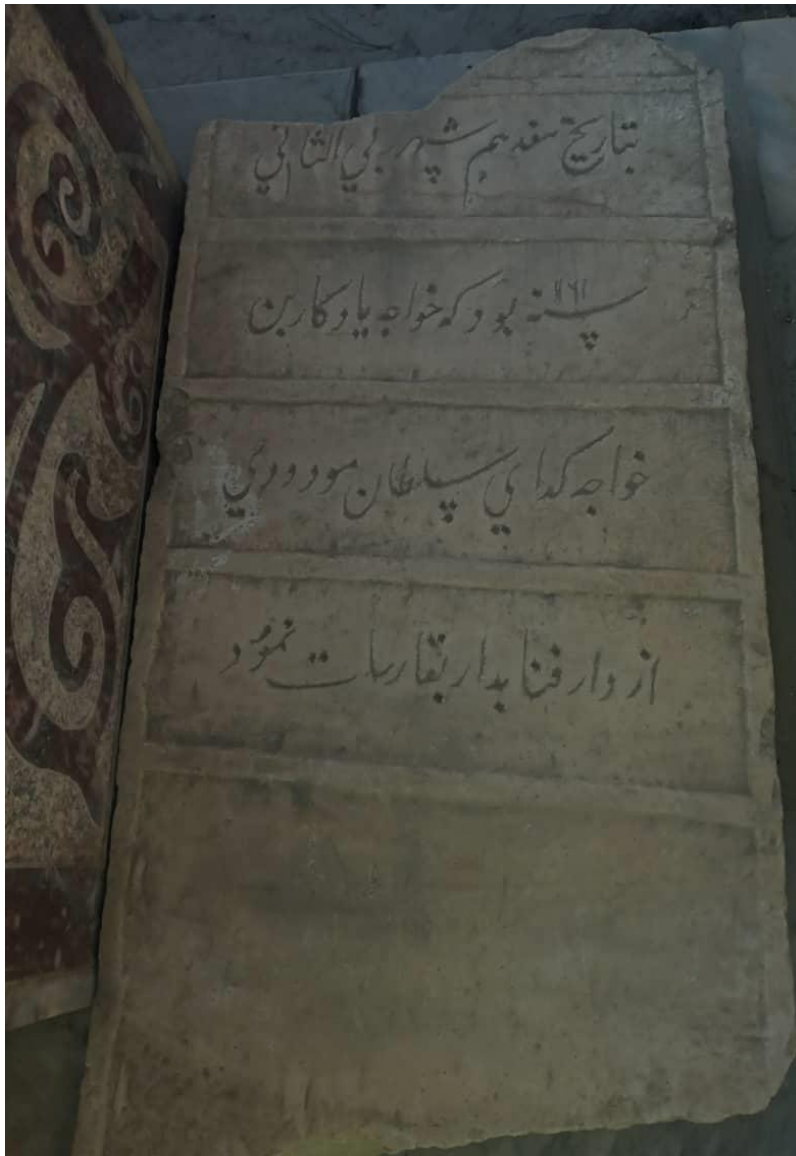 بتاریخ هفدهم شهر ربي الثاني
سنه ۱۱۶۱ بود که خواجه یادکار بن
خواجه کداي سلطان مودودي
از دار فنا بدار بقا رحلت نمود